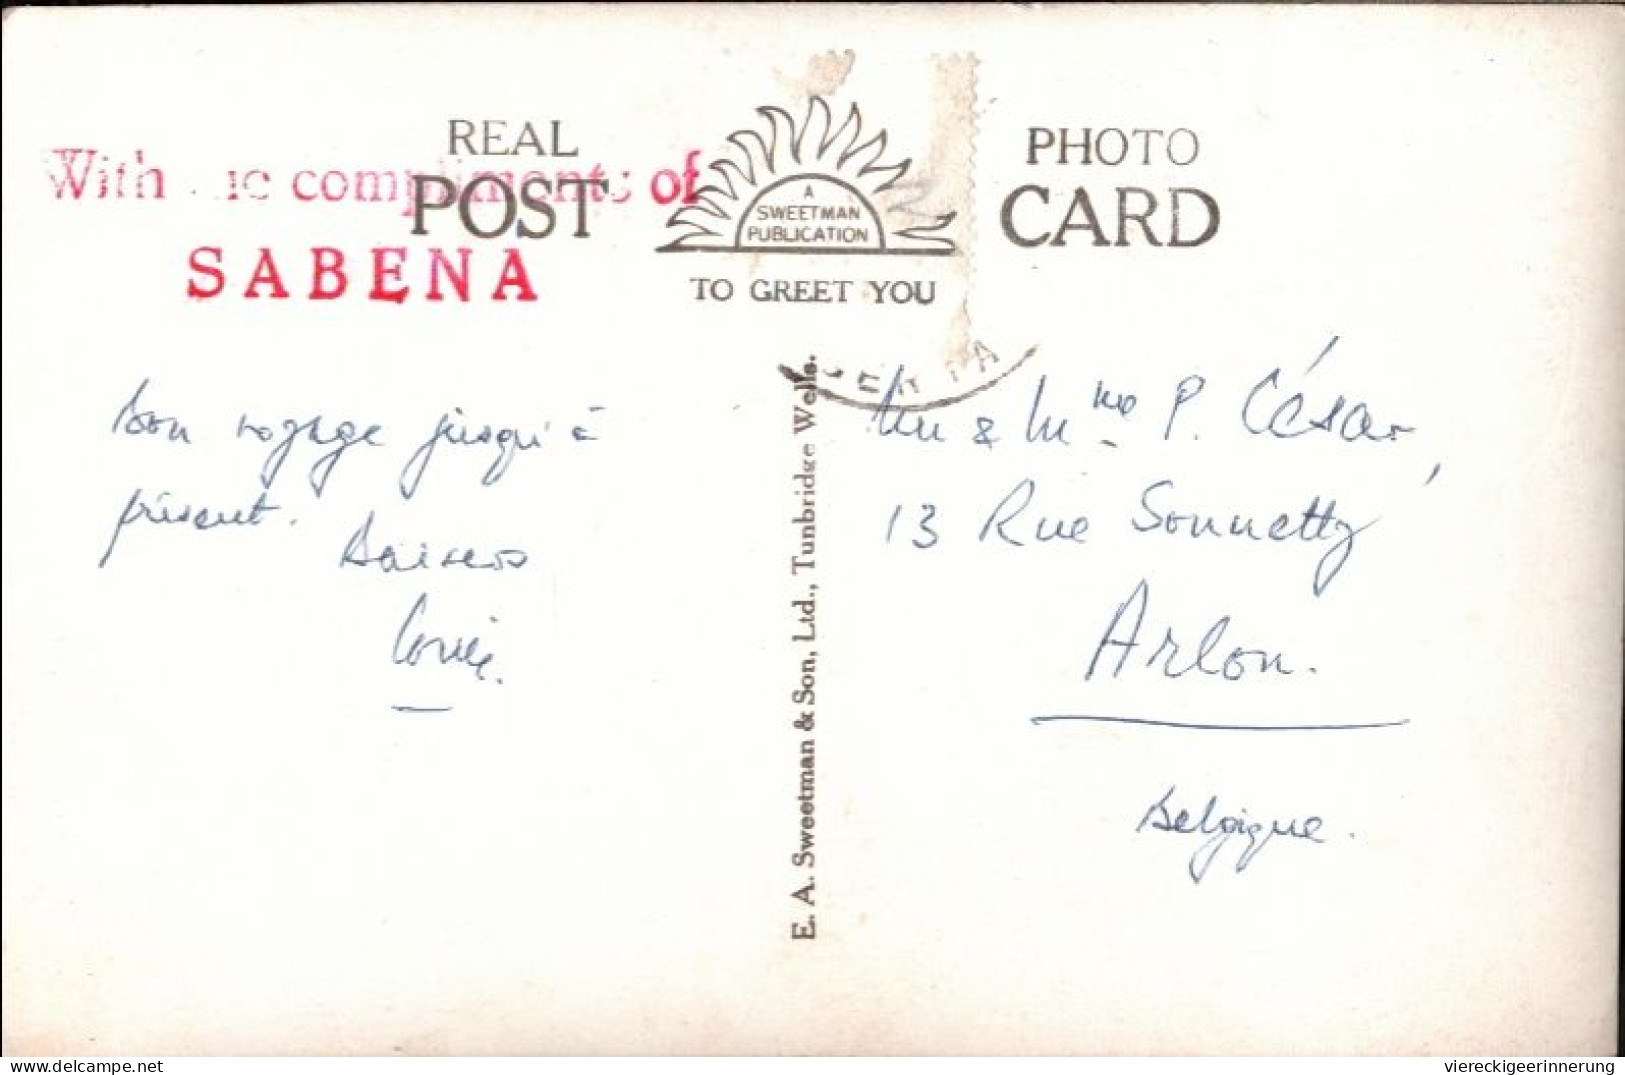 REAL
PHOTO
With the compliments of
POST
CARD
SABENA
A
SWEETMAN
PUBLICATION
TO GREET YOU
Bon voyage jusqu'à
présent.
Baisers
E. A. Sweetman & Son, Ltd., Tunbridge Wells.
& Mme P. César,
13 Rue Sonnetty
Arlon.
Belgique.
delcampe.net
viereckigeerinnerung